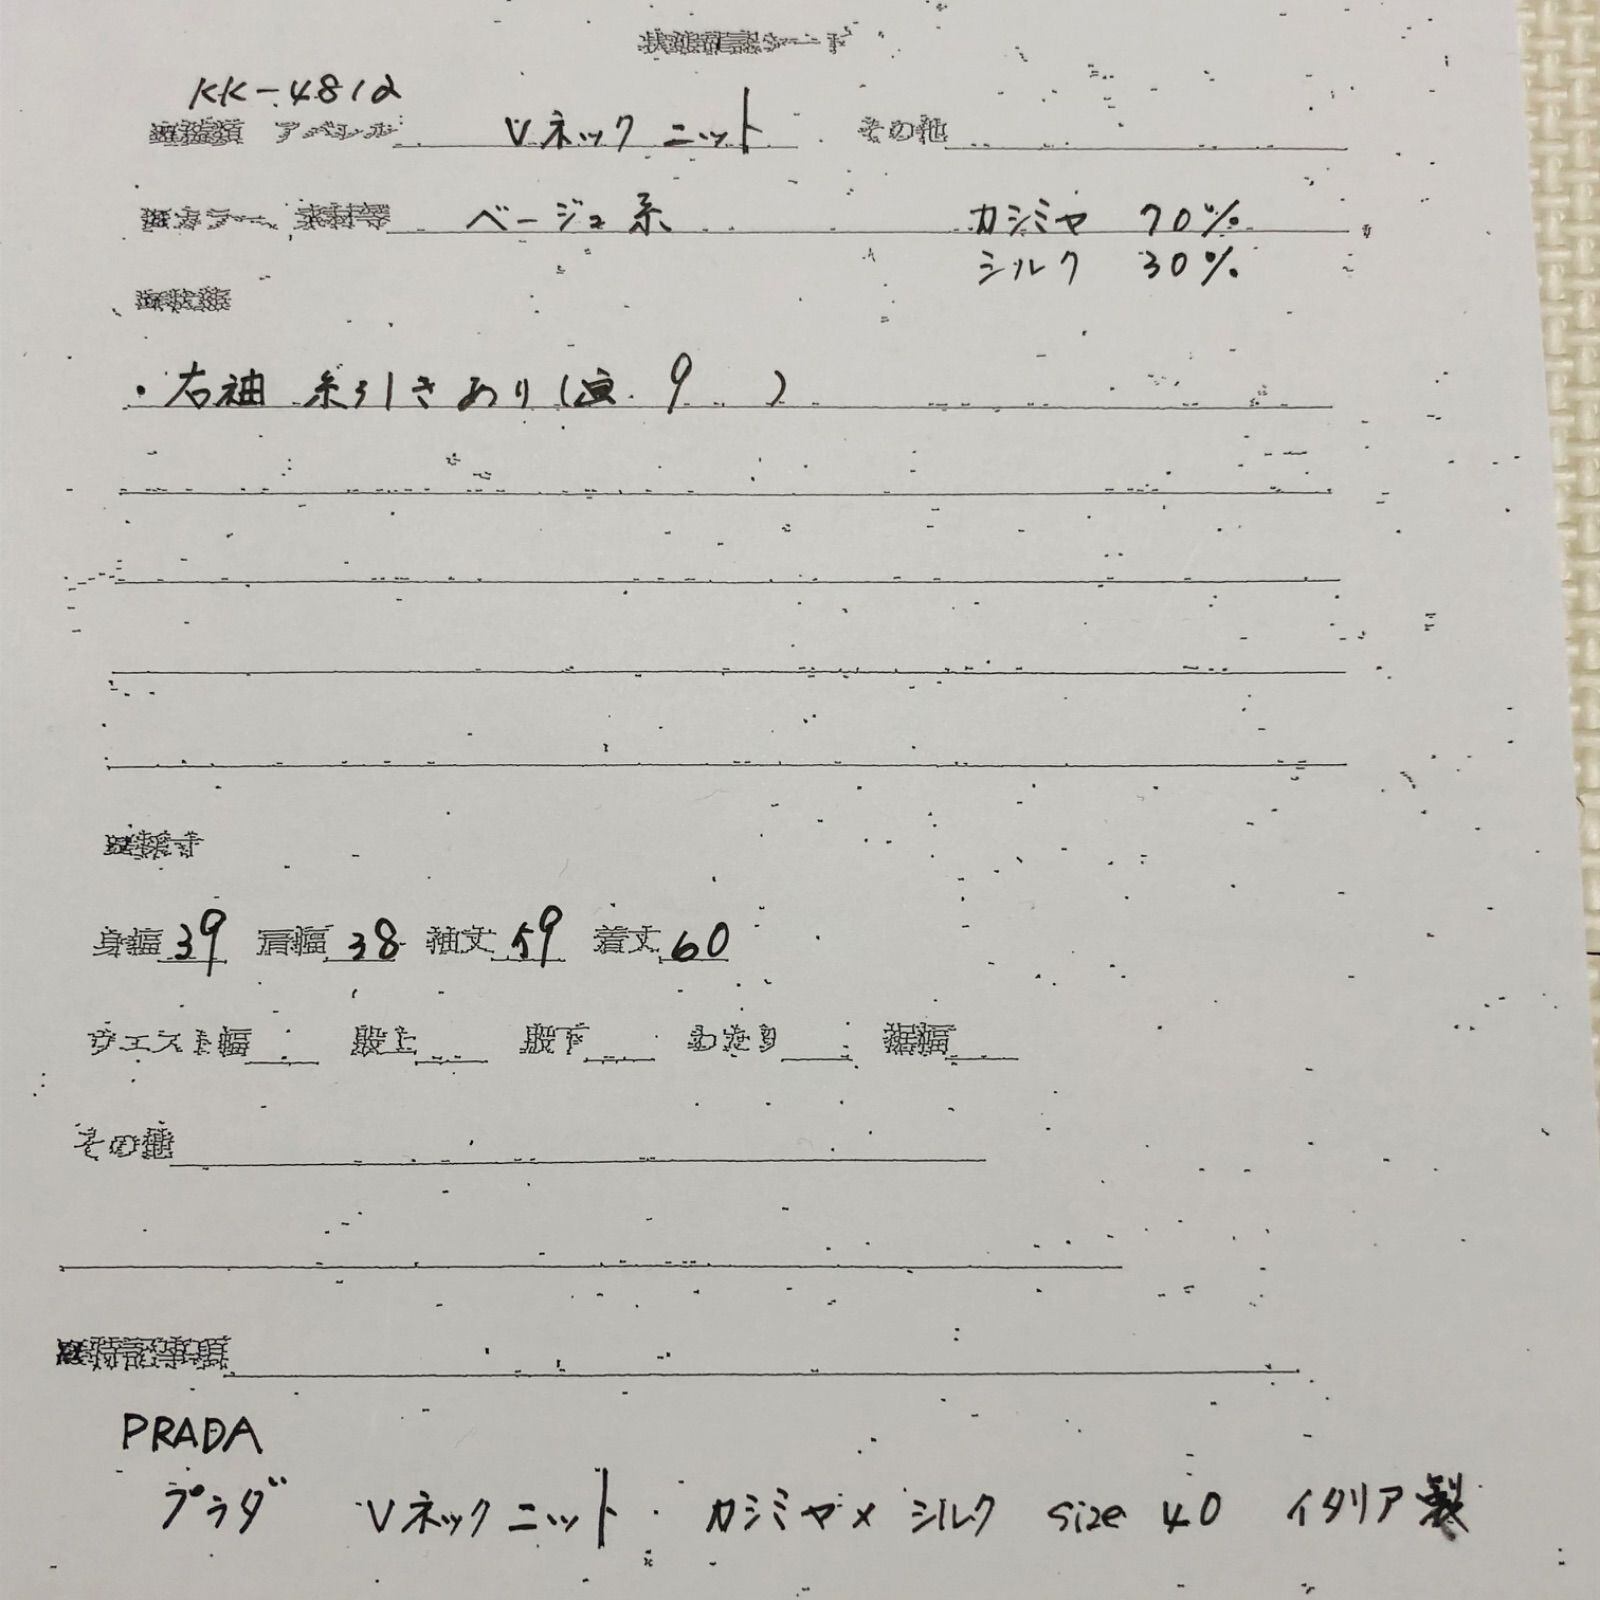 状態確認シート
KK-4812
種類 アパレル Vネック ニット その他
カラー、素材等 ベージュ系 カシミヤ 70%
シルク 30%
状態
・右袖 糸引きあり( 9 )
採寸
身幅 39 肩幅 38 袖丈 59 着丈 60
ウエスト幅 股上 股下 わたり 裾幅
その他
特記事項
PRADA
プラダ Vネックニット カシミヤ×シルク size 40 イタリア製